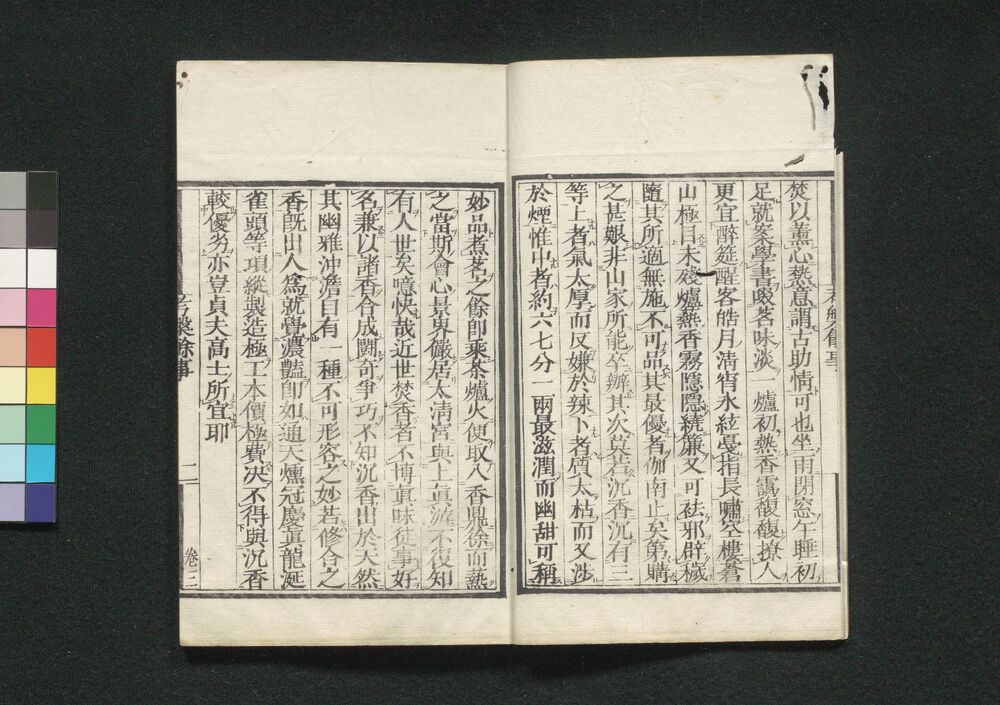 焚以薰心熱意謂古助情可也坐雨閉窓午睡初
足就案學書啜茗味淡一爐初熱香靄馥馥撩人
更宜醉筵醒客皓月清宵氷絃戞指長嘯空樓蒼
山極目未殘爐熱香霧隱隱繞簾又可袪邪辟穢
隨其所適無施不可品其最優者伽南止矣第購
之甚艱非山家所能卒辦其次莫若沉香沉有三
等上者氣太厚而反嫌於辣下者質太枯而又涉
於煙惟中者約六七分一兩最滋潤而幽甜可稱
妙品煮茗之餘卽乘茶爐火便取入香鼎徐而熱
之當斯會心景界儼居太清宮與上眞游不復知
有人世矣噫快哉近世焚香者不博眞味徒事好
名兼以諸香合成鬪奇爭巧不知沉香出於天然
其幽雅沖澹自有一種不可形容之妙若修合之
香旣出人爲就覺濃豔卽如通天燻冠慶眞龍涎
雀頭等項縱製造極工本價極費決不得與沉香
較優劣亦豈貞夫高士所宜耶
考槃餘事
二
卷三